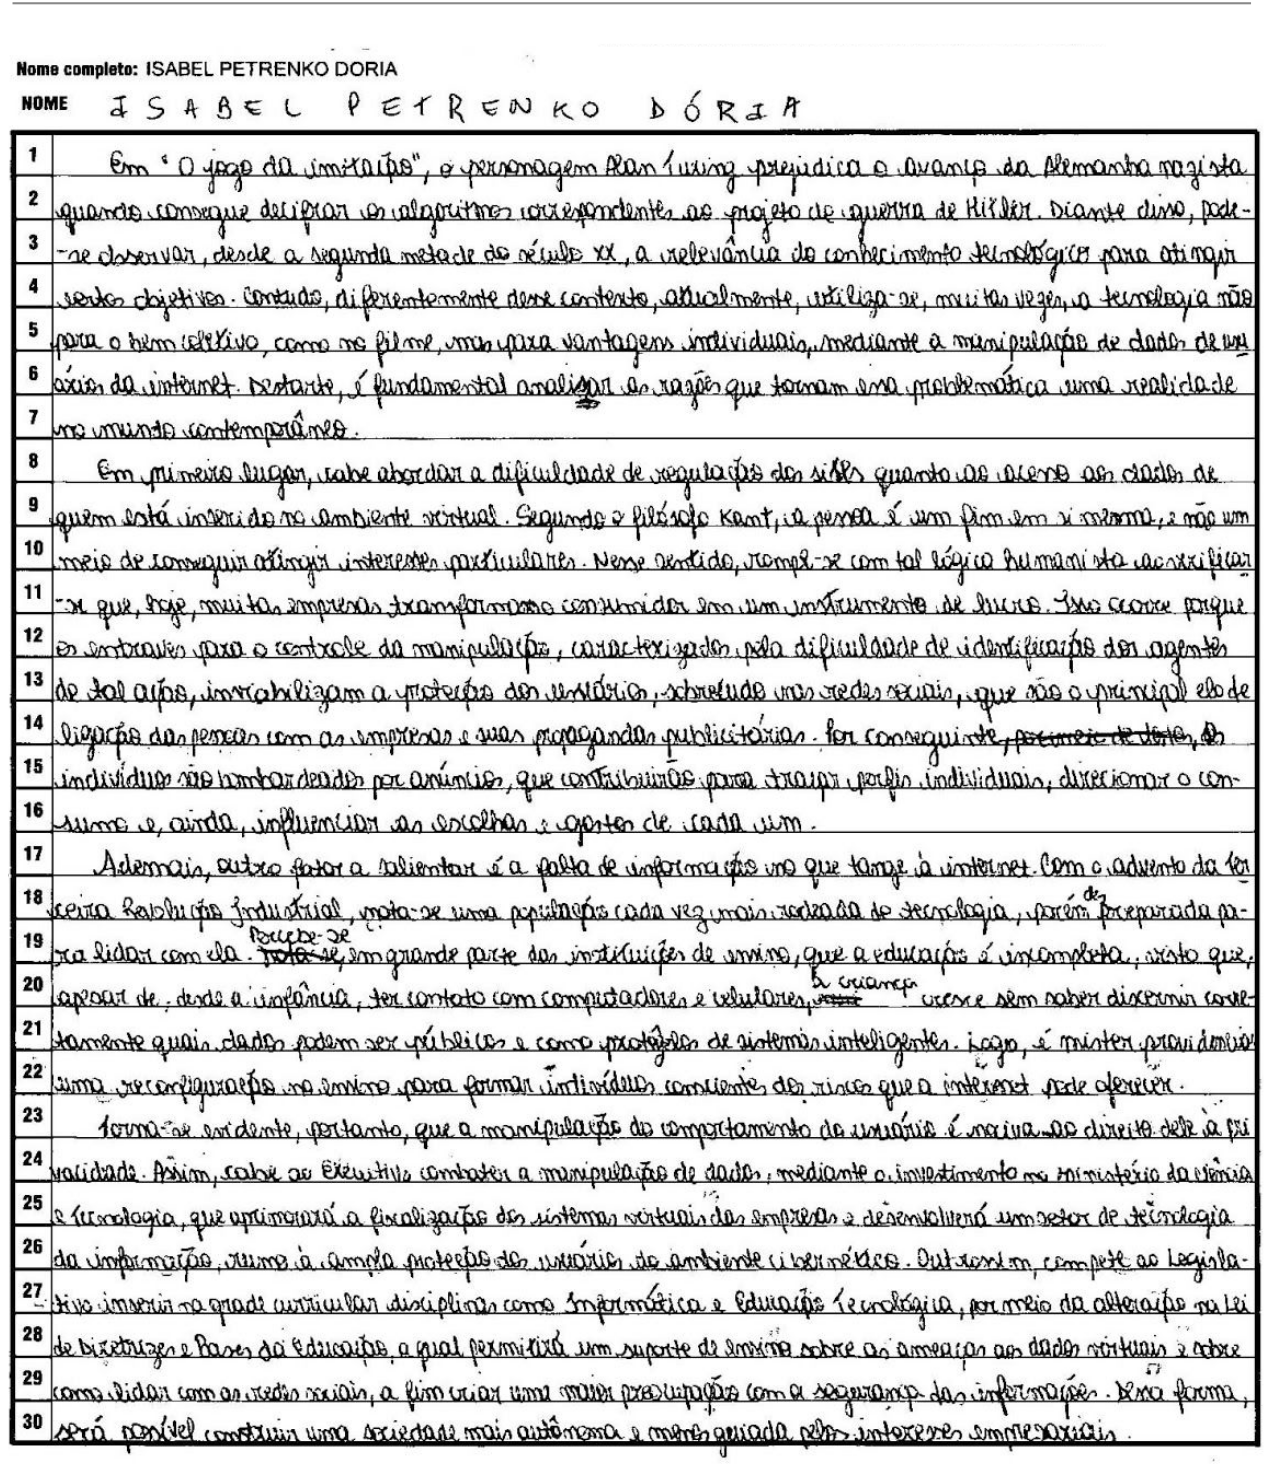 Nome completo: ISABEL PETRENKO DORIA
NOME ISABEL PETRENKO DÓRIA
1 Em "O jogo da imitação", o personagem Alan Turing prejudica o avanço da Alemanha nazista
2 quando consegue decifrar os algoritmos correspondentes ao projeto de guerra de Hitler. Diante disso, pode-
3 -se observar, desde a segunda metade do século XX, a relevância do conhecimento tecnológico para atingir
4 certos objetivos. Contudo, diferentemente desse contexto, atualmente, utiliza-se, muitas vezes, a tecnologia não
5 para o bem coletivo, como no filme, mas para vantagens individuais, mediante a manipulação de dados de usu
6 ários da internet. Destarte, é fundamental analisar as razões que tornam essa problemática uma realidade
7 no mundo contemporâneo.
8 Em primeiro lugar, cabe abordar a dificuldade de regulação dos sites quanto ao acesso aos dados de
9 quem está inserido no ambiente virtual. Segundo o filósofo Kant, a pessoa é um fim em si mesma, e não um
10 meio de conseguir atingir interesses particulares. Nesse sentido, rompe-se com tal lógica humanista ao verificar
11 -se que, hoje, muitas empresas transformam o consumidor em um instrumento de lucro. Isso ocorre porque
12 os entraves para o controle da manipulação, caracterizados pela dificuldade de identificação dos agentes
13 de tal ação, inviabilizam a proteção dos usuários, sobretudo nas redes sociais, que são o principal elo de
14 ligação das pessoas com as empresas e suas propagandas publicitárias. Por conseguinte, os
15 indivíduos são bombardeados por anúncios, que contribuirão para traçar perfis individuais, direcionar o con-
16 sumo e, ainda, influenciar as escolhas e gostos de cada um.
17 Ademais, outro fator a salientar é a falta de informação no que tange à internet. Com o advento da Ter
18 ceira Revolução Industrial, nota-se uma população cada vez mais rodeada de tecnologia, porém despreparada pa-
19 ra lidar com ela. Percebe-se, em grande parte das instituições de ensino, que a educação é incompleta, visto que,
20 apesar de, desde a infância, ter contato com computadores e celulares, a criança cresce sem saber discernir corre-
21 tamente quais dados podem ser públicos e como protegê-los de sistemas inteligentes. Logo, é mister providenciar
22 uma reconfiguração no ensino para formar indivíduos conscientes dos riscos que a internet pode oferecer.
23 Torna-se evidente, portanto, que a manipulação do comportamento do usuário é nociva ao direito dele à pri
24 vacidade. Assim, cabe ao Executivo combater a manipulação de dados, mediante o investimento no Ministério da Ciência
25 e Tecnologia, que aprimorará a fiscalização dos sistemas virtuais das empresas e desenvolverá um setor de tecnologia
26 da informação, rumo à ampla proteção dos usuários do ambiente cibernético. Outrossim, compete ao Legisla-
27 tivo inserir na grade curricular disciplinas como Informática e Educação Tecnológica, por meio da alteração na Lei
28 de Diretrizes e Bases da Educação, a qual permitirá um suporte de ensino sobre as ameaças aos dados virtuais e sobre
29 como lidar com as redes sociais, a fim criar uma maior preocupação com a segurança das informações. Dessa forma,
30 será possível construir uma sociedade mais autônoma e menos guiada pelos interesses empresariais.